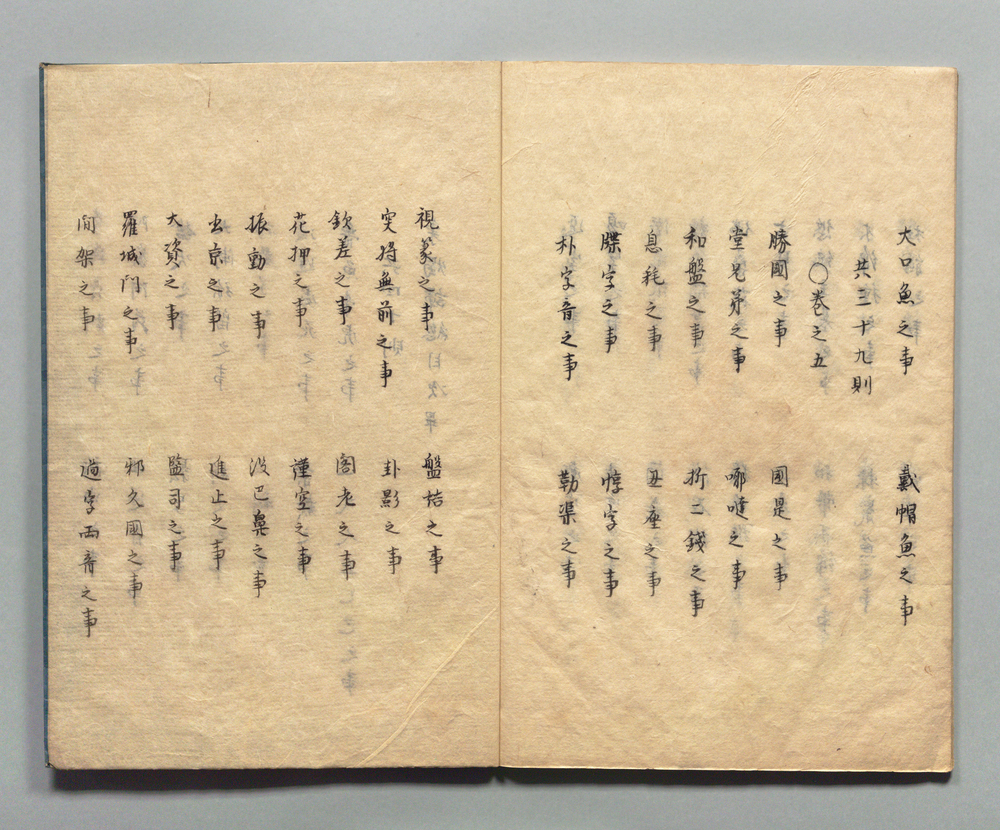 大口魚之事　戴帽魚之事
共三十九則
〇巻之五
勝國之事　國是之事
堂兄弟之事　啣噠之事
和盤之事　折二錢之事
息耗之事　丑座之事
牒字之事　惇字之事
朴字音之事　勒渠之事
視篆之事　盤桔之事
突將無前之事　卦影之事
欽差之事　閤老之事
花押之事　謹空之事
振動之事　没巴鼻之事
出京之事　進止之事
大資之事　監司之事
羅城門之事　邪久國之事
間架之事　過字両音之事